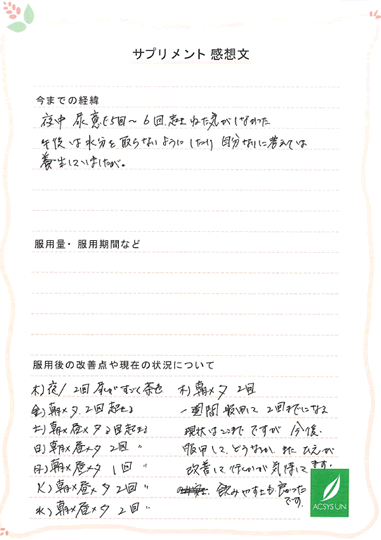 サプリメント 感想文
今までの経緯
夜中 尿意で5回〜6回起き ねた気がしなかった
午後は水分を取らないようにしたり 自分なりに考えては
養生していましたが。
服用量・服用期間など
服用後の改善点や現在の状況について
木) 夜/2回 尿がすごく茶色
金) 朝〆夕 2回起きる
土) 朝〆昼〆夕 2回起きる
日) 朝〆昼〆夕 2回 〃
月) 朝〆昼〆夕 1回 〃
火) 朝〆昼〆夕 2回 〃
水) 朝〆昼〆夕 2回 〃
木) 朝〆夕 2回
一週間 服用して 2回までになる
現状はここまで ですが 今後
服用して どうなるか また ひえが
改善して ほしいのが 気持ちです。
飲みやすさも 良かった
です。
ACSYS UN